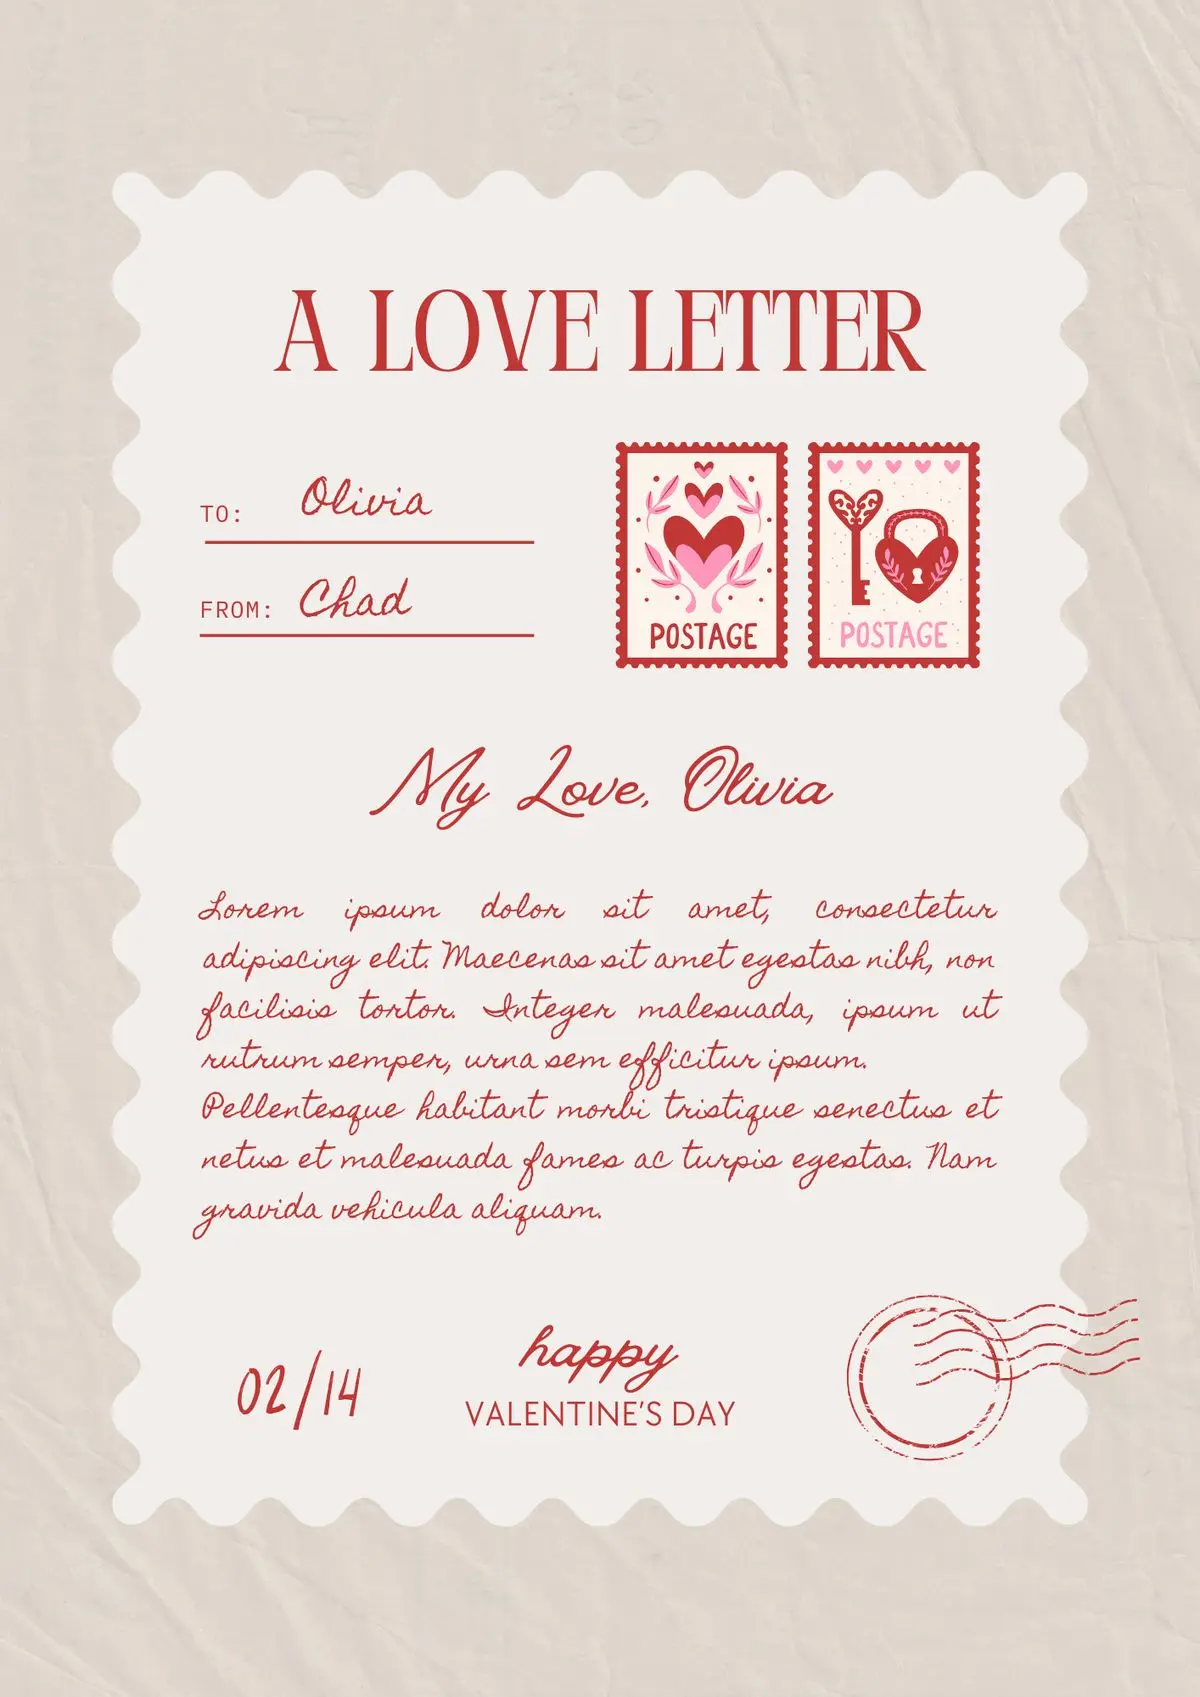 A LOVE LETTER
TO: Olivia
FROM: Chad
POSTAGE
POSTAGE
My Love, Olivia
Lorem ipsum dolor sit amet, consectetur
adipiscing elit. Maecenas sit amet egestas nibh, non
facilisis tortor. Integer malesuada, ipsum ut
rutrum semper, urna sem efficitur ipsum.
Pellentesque habitant morbi tristique senectus et
netus et malesuada fames ac turpis egestas. Nam
gravida vehicula aliquam.
02/14
happy
VALENTINE'S DAY